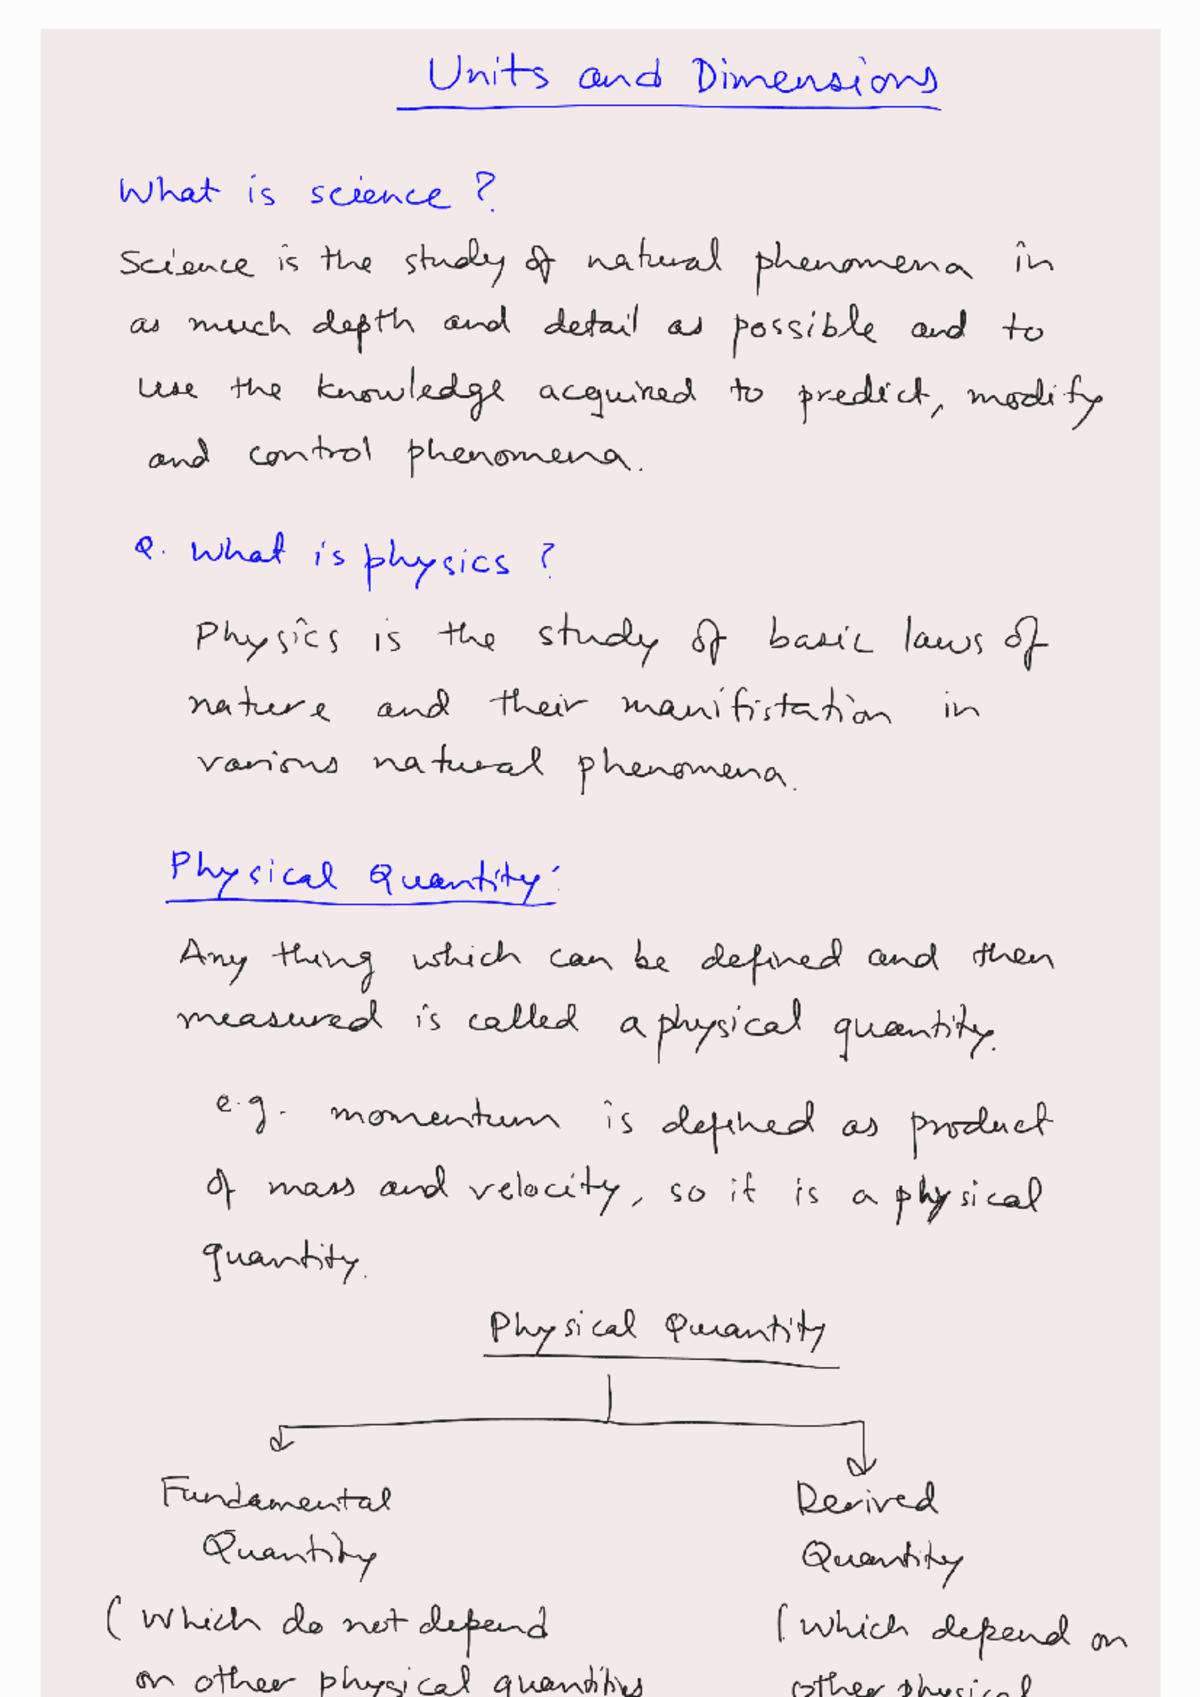 Units and Dimensions
What is science ?
Science is the study of natural phenomena in
as much depth and detail as possible and to
use the knowledge acquired to predict, modify
and control phenomena.
Q. What is physics ?
Physics is the study of basic laws of
nature and their manifistation in
various natural phenomena.
Physical Quantity:
Any thing which can be defined and then
measured is called a physical quantity.
e.g. momentum is defined as product
of mass and velocity, so it is a physical
quantity.
Physical Quantity
Fundamental
Quantity
(which do not depend
on other physical quantities
Derived
Quantity
(which depend on
other physical